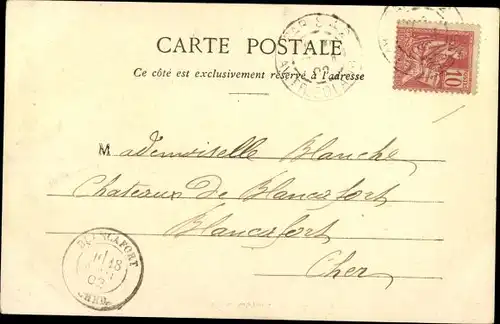 CARTE POSTALE
Ce côté est exclusivement réservé à l'adresse
10
Mademoiselle Blanche
Chateaux de Blancafort
Blancafort
Cher
BLANCAFORT
18
02
CHER